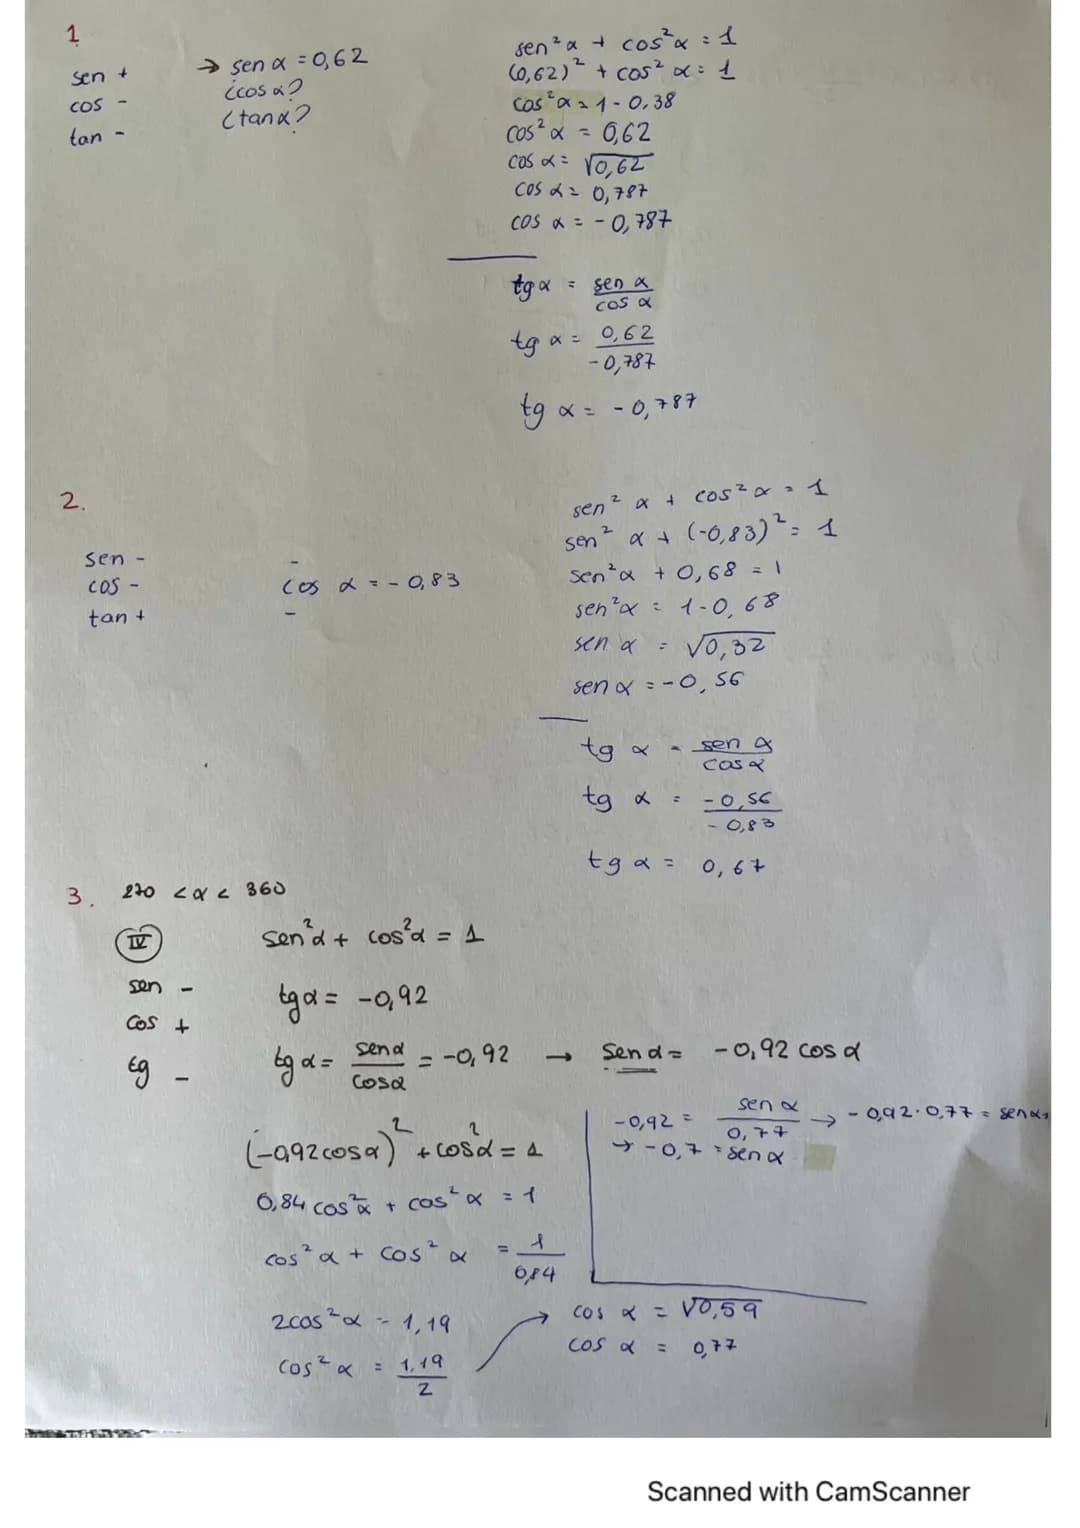 1
sen +
cos -
tan -
→ sen α = 0,62
¿cos α?
¿tan α?
sen² α + cos² α = 1
(0,62)² + cos² α = 1
cos² α = 1 - 0,38
cos² α = 0,62
cos α = √0,62
cos α = 0,787
cos α = - 0,787
tg α = sen α / cos α
tg α = 0,62 / -0,787
tg α = - 0,787
2.
sen -
cos -
tan +
cos α = - 0,83
sen² α + cos² α = 1
sen² α + (-0,83)² = 1
sen² α + 0,68 = 1
sen² α = 1 - 0,68
sen α = √0,32
sen α = -0,56
tg α = sen α / cos α
tg α = -0,56 / -0,83
tg α = 0,67
3. 270 < α < 360
IV
sen -
cos +
tg -
sen² α + cos² α = 1
tg α = -0,92
tg α = sen α / cos α = -0,92 → sen α = -0,92 cos α
(-0,92 cos α)² + cos² α = 1
0,84 cos² α + cos² α = 1
cos² α + cos² α = 1 / 0,84
2cos² α = 1,19
cos² α = 1,19 / 2
-0,92 = sen α / 0,77 → -0,92 · 0,77 = sen α →
→ -0,7 = sen α
cos α = √0,59
cos α = 0,77
Scanned with CamScanner